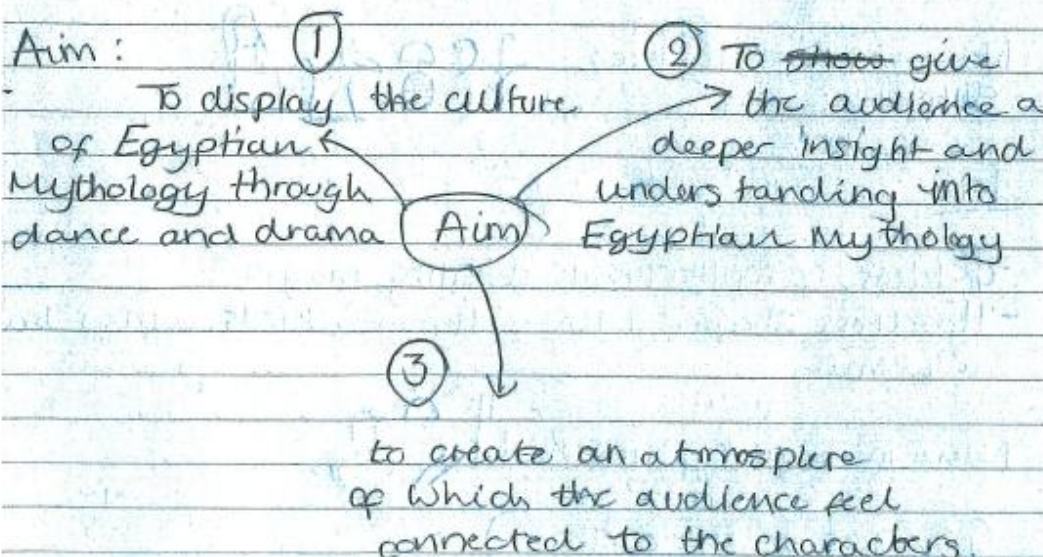 Aim :
①
To display the culture
of Egyptian
Mythology through
dance and drama
Aim
② To show give
the audience a
deeper insight and
understanding into
Egyptian Mythology
③
to create an atmosphere
of which the audience feel
connected to the characters